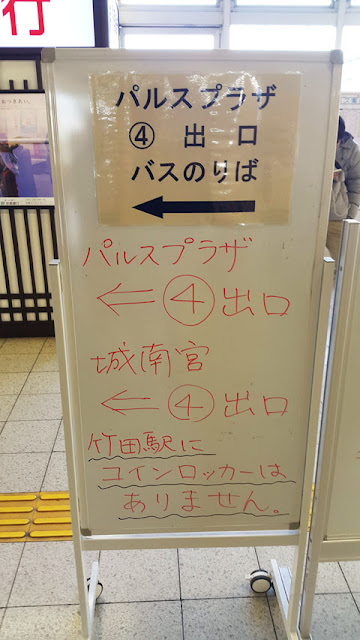 行
パルスプラザ
④ 出口
バスのりば
←
パルスプラザ
⇐ ④ 出口
城南宮
← ④ 出口
竹田駅に
コインロッカーは
ありません。